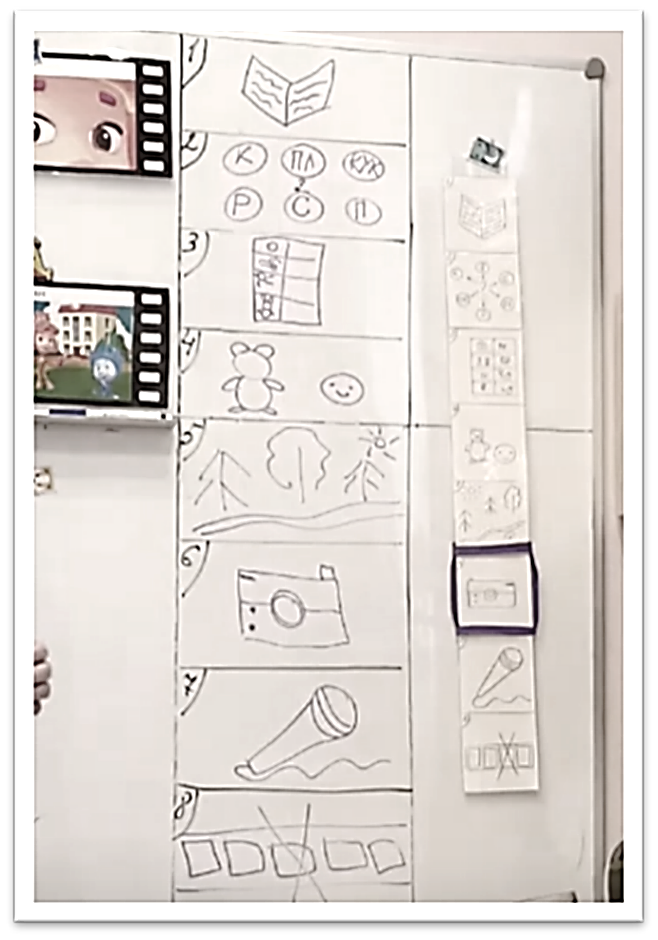 1
2
К ПЛ КУК
?
Р С П
3
4
5
6
7
8